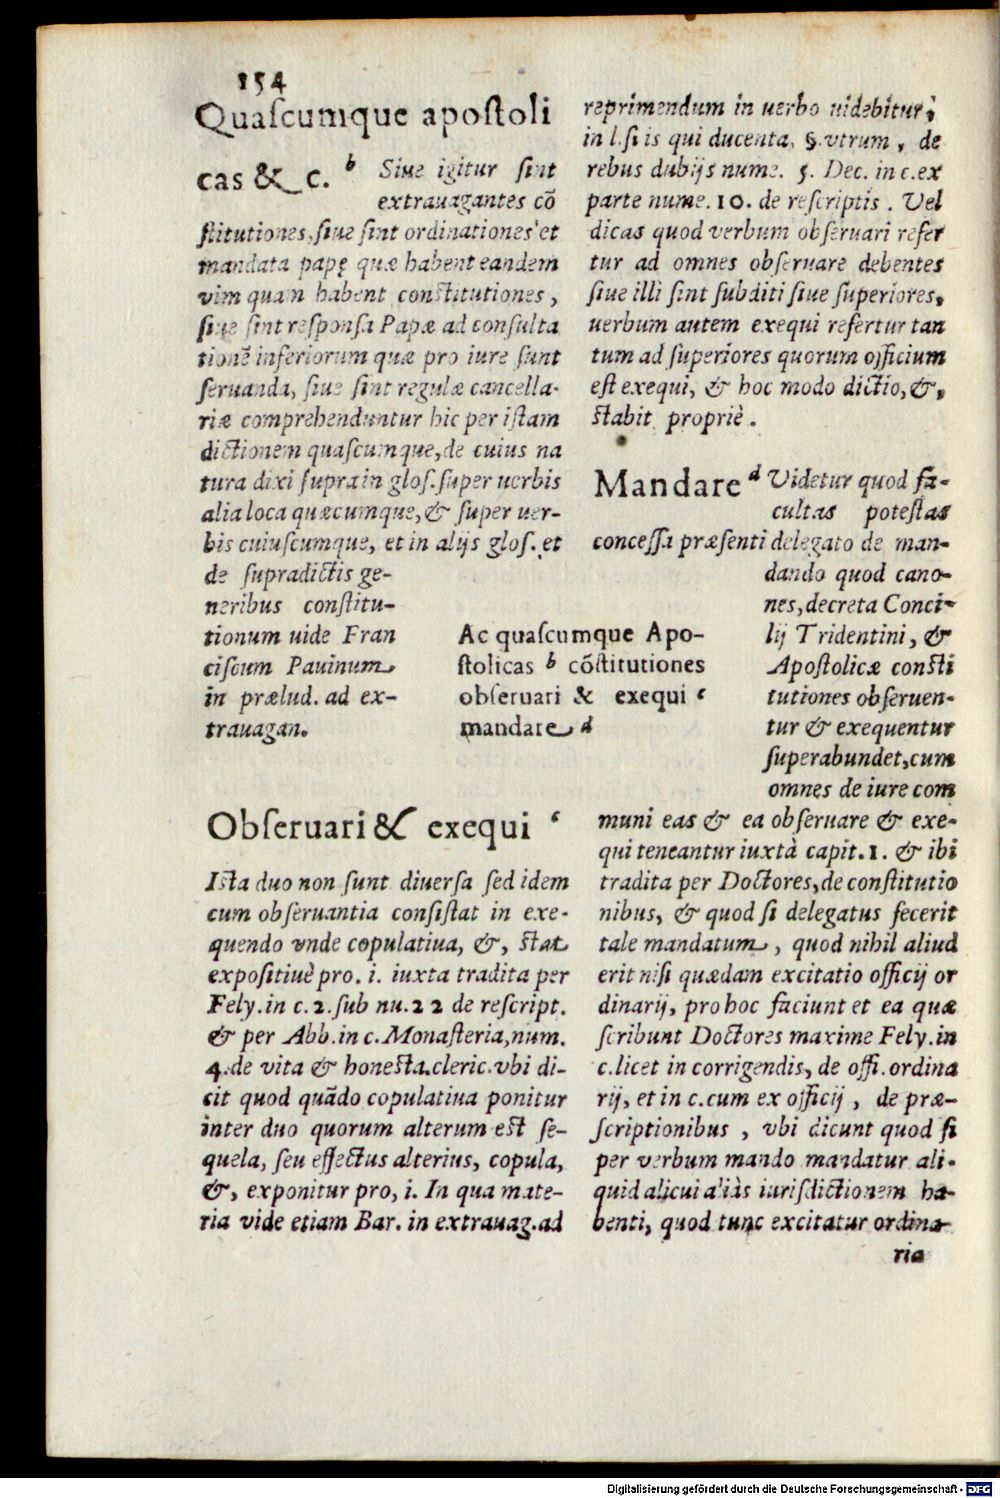 154
Quaſcumque apoſtoli
cas & c. b Siue igitur ſint
extrauagantes cō
ſtitutiones, ſiue ſint ordinationes et
mandata papę quæ habent eandem
vim quam habent conſtitutiones,
ſiue ſint reſponſa Papæ ad conſulta
tionē inferiorum quæ pro iure ſunt
ſeruanda, ſiue ſint regulæ cancella-
riæ comprehenduntur hic per iſtam
dictionem quaſcumque, de cuius na
tura dixi ſupra in gloſ. ſuper uerbis
alia loca quæcumque, & ſuper uer-
bis cuiuſcumque, et in alijs gloſ. et
de ſupradictis ge-
neribus conſtitu-
tionum uide Fran
ciſcum Pauinum
in prælud. ad ex-
trauagan.
Ac quaſcumque Apo-
ſtolicas b cōſtitutiones
obſeruari & exequi c
mandare d
Obſeruari & exequi c
Iſta duo non ſunt diuerſa ſed idem
cum obſeruantia conſiſtat in exe-
quendo vnde copulatiua, &, ſtat
expoſitiuè pro. i. iuxta tradita per
Fely. in c. 2. ſub nu. 22 de reſcript.
& per Abb. in c. Monaſteria, num.
4. de vita & honeſta. cleric. vbi di-
cit quod quādo copulatiua ponitur
inter duo quorum alterum eſt ſe-
quela, ſeu effectus alterius, copula,
&, exponitur pro, i. In qua mate-
ria vide etiam Bar. in extrauag. ad
reprimendum in uerbo uidebitur;
in l. ſi is qui ducenta, §. vtrum, de
rebus dubijs nume. 5. Dec. in c. ex
parte nume. 10. de reſcriptis. Vel
dicas quod verbum obſeruari refer
tur ad omnes obſeruare debentes
ſiue illi ſint ſubditi ſiue ſuperiores,
uerbum autem exequi refertur tan
tum ad ſuperiores quorum officium
eſt exequi, & hoc modo dictio, &,
ſtabit propriè.
Mandare d Videtur quod fa-
cultas poteſtas
conceſſa præſenti delegato de man-
dando quod cano-
nes, decreta Conci-
lij Tridentini, &
Apoſtolicæ conſti
tutiones obſeruen-
tur & exequentur
ſuperabundet, cum
omnes de iure com
muni eas & ea obſeruare & exe-
qui teneantur iuxtà capit. 1. & ibi
tradita per Doctores, de conſtitutio
nibus, & quod ſi delegatus fecerit
tale mandatum, quod nihil aliud
erit niſi quædam excitatio officij or
dinarij, pro hoc faciunt et ea quæ
ſcribunt Doctores maxime Fely. in
c. licet in corrigendis, de offi. ordina
rij, et in c. cum ex officij, de præ-
ſcriptionibus, vbi dicunt quod ſi
per verbum mando mandatur ali-
quid alicui aliàs iuriſdictionem ha-
benti, quod tunc excitatur ordina-
ria
Digitalisierung gefördert durch die Deutsche Forschungsgemeinschaft - DFG